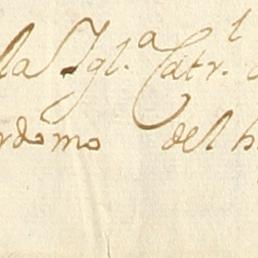 la Igl.ª Catr.l
rdomo del h